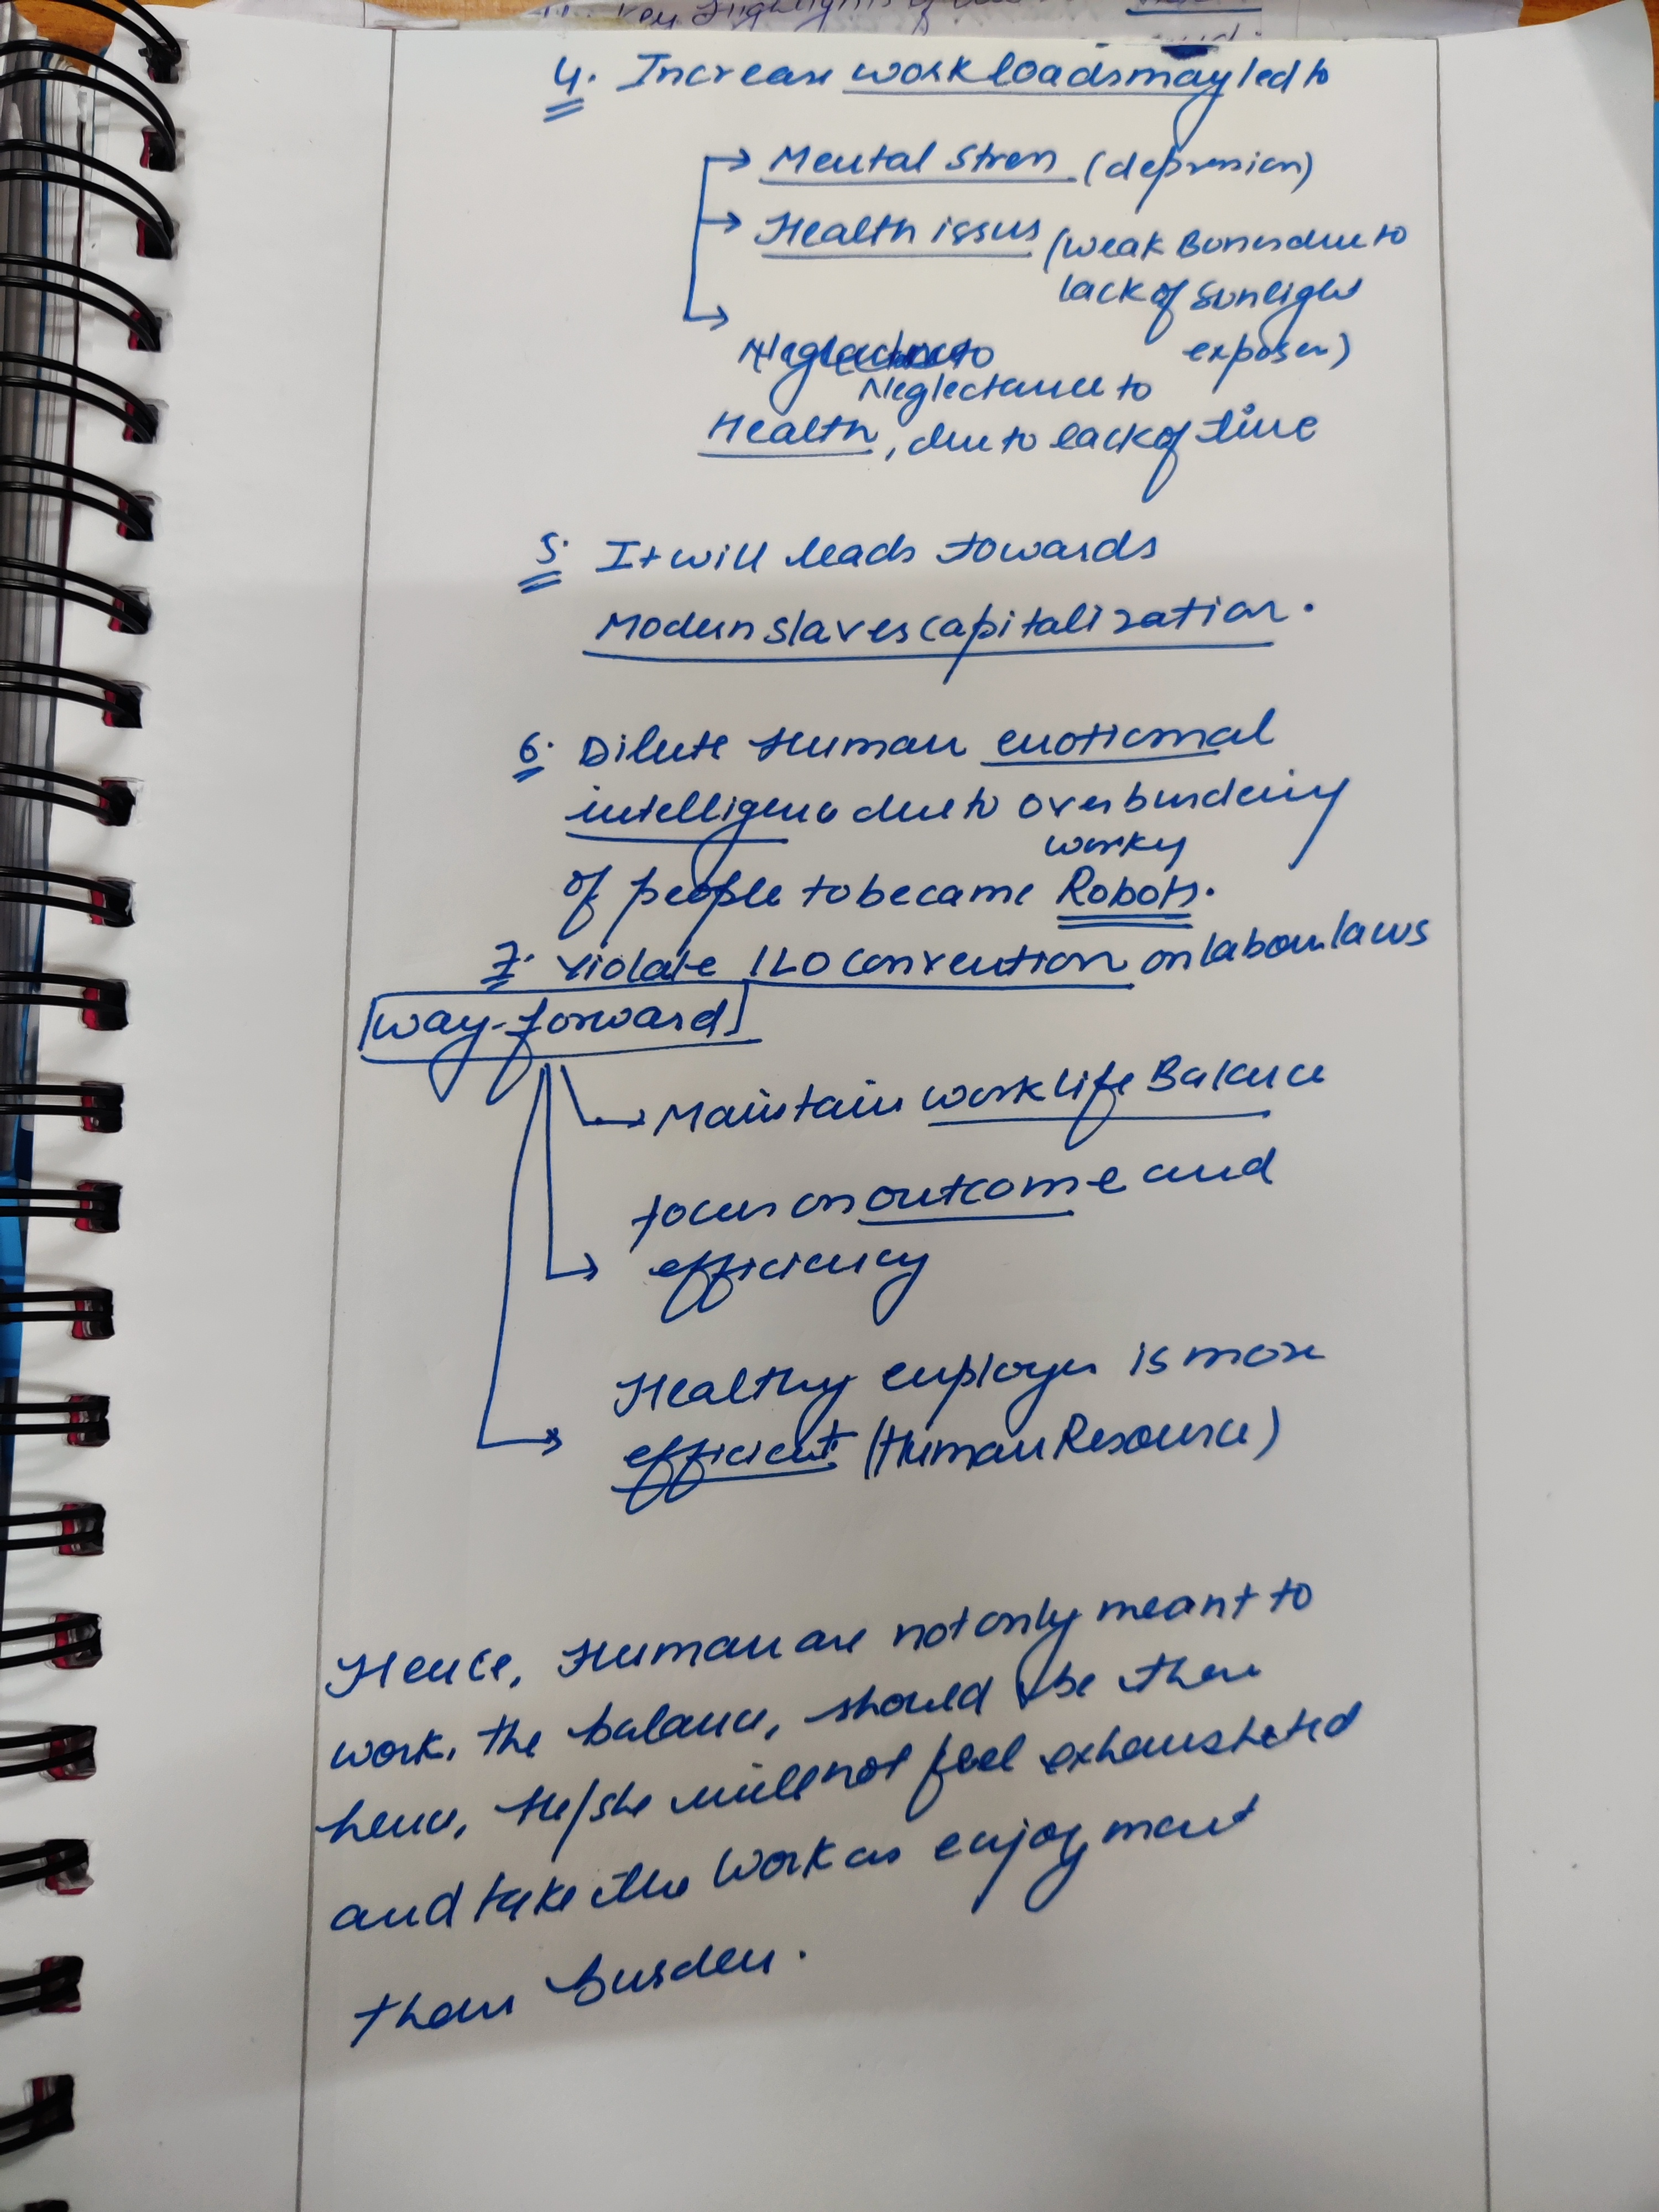 4. Increase workloads may led to
→ Mental Stress (depression)
→ Health issus (weak Bones due to
lack of sunlight
exposer)
Neglectance to
Health, due to lack of time
5. It will leads towards
Modern slaves capitalization.
6. Dilute Human emotional
intelligence due to over burdening
of people to became working Robots.
7. Violate ILO convention on labour laws
[Way-forward]
→ Maintain work life Balance
→ focus on outcome and
efficiency
→ Healthy employee is more
efficient (Human Resource)
Hence, Human are not only meant to
work. The balance, should be there
hence, He/she will not feel exhaustated
and take the work as enjoyment
than burden.